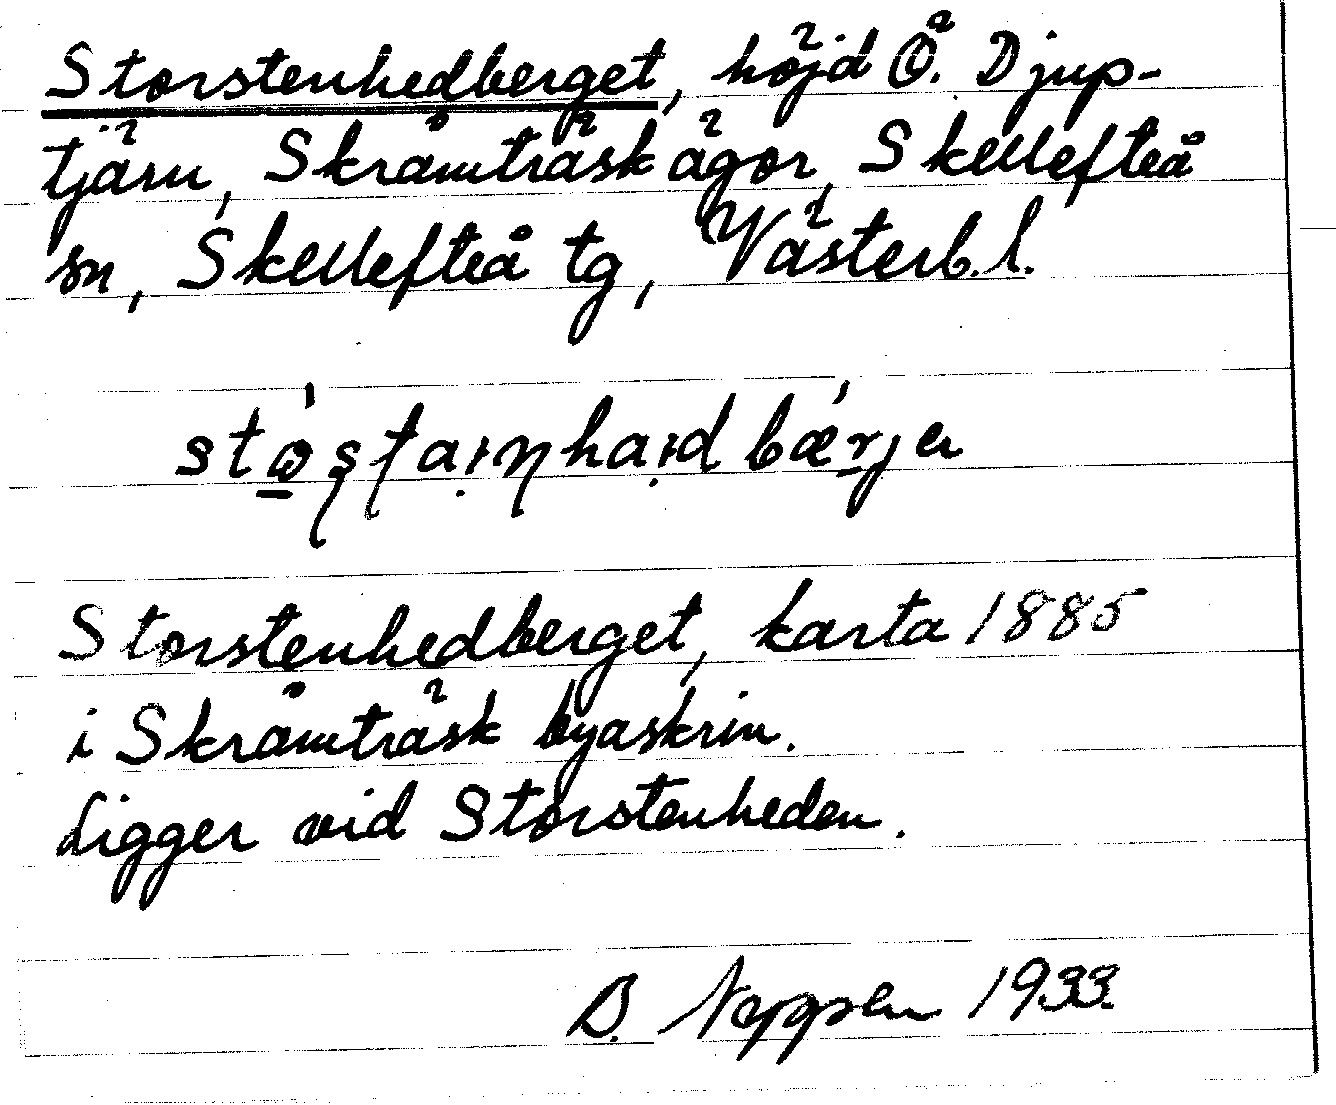 Storstenhedberget, höjd Ö. Djup-
tjärn, Skråmträsk ägor, Skellefteå
sn, Skellefteå tg, Västerb. l.
Storstenhedberget, karta 1885
i Skråmträsk byaskrin.
Ligger vid Storstenheden.
B. 1933.